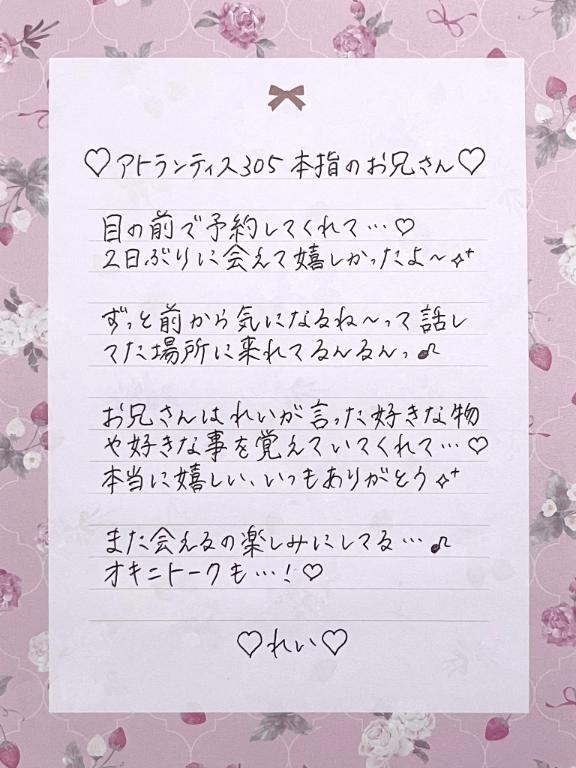 ♡アトランティス305 本指のお兄さん♡
目の前で予約してくれて…♡
2日ぶりに会えて嬉しかったよ〜✧⁺
ずっと前から気になるね〜って話し
てた場所に来れてるんるんっ♪
お兄さんはれいが言った好きな物
や好きな事を覚えていてくれて…♡
本当に嬉しい、いつもありがとう✧⁺
また会えるの楽しみにしてる…♪
オキニトークも…!♡
♡れい♡